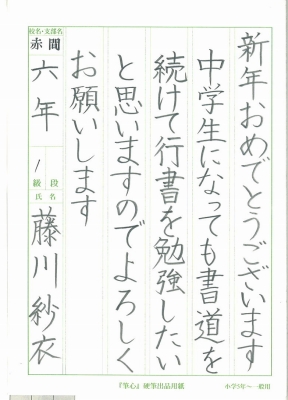 新年おめでとうございます
中学生になっても書道を
続けて行書を勉強したい
と思いますのでよろしく
お願いします
校名・支部名
赤間
六年
1
級 段
氏名
藤川紗衣
『筆心』硬筆出品用紙
小学5年〜一般用